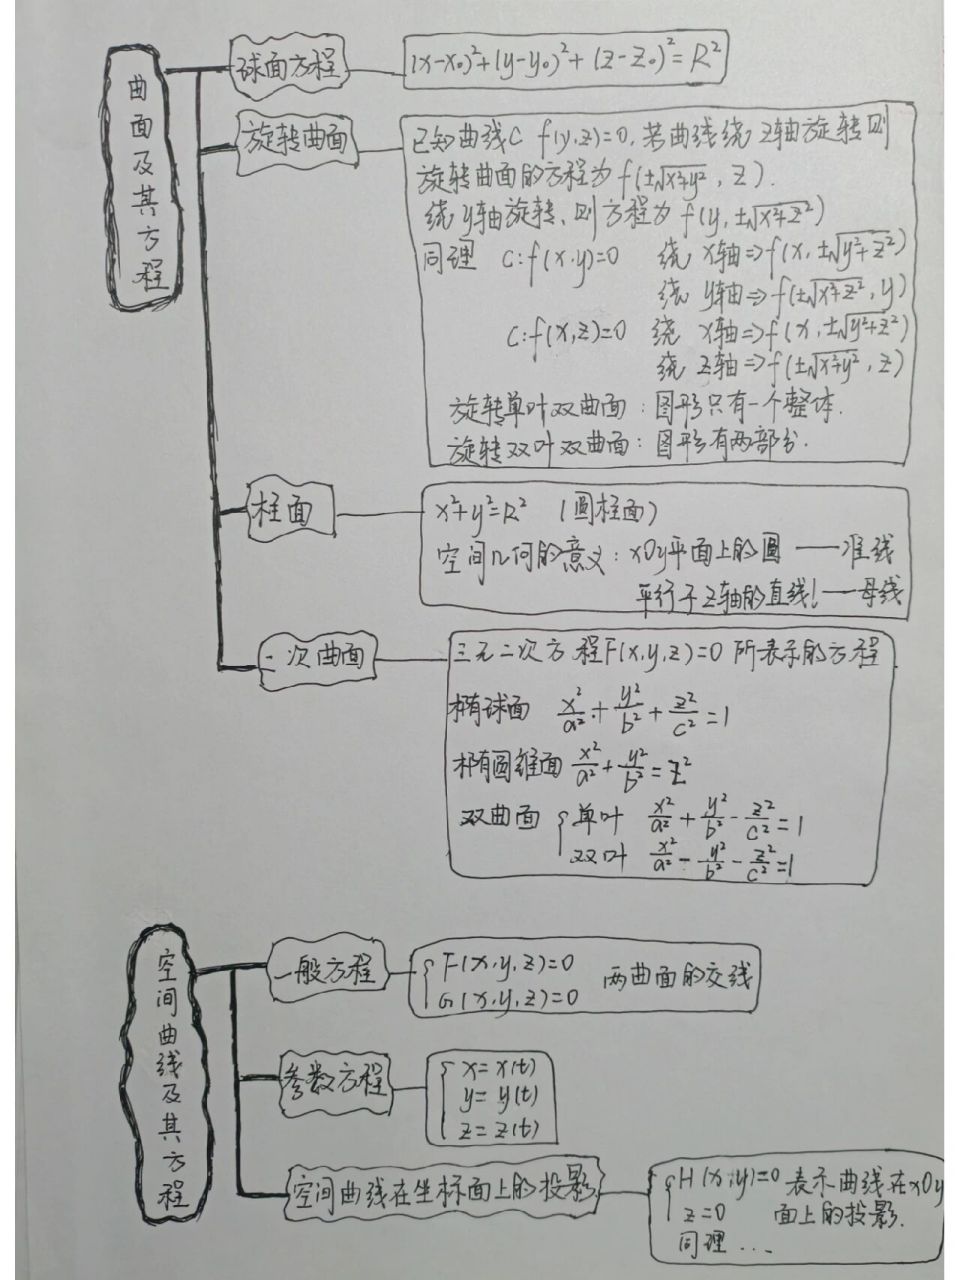 曲面及其方程
球面方程
(x-x₀)²+(y-y₀)²+(z-z₀)²=R²
旋转曲面
已知曲线C f(y,z)=0,若曲线绕z轴旋转则
旋转曲面的方程为f(±√x²+y², z).
绕y轴旋转,则方程为f(y,±√x²+z²)
同理 C:f(x,y)=0 绕x轴=>f(x,±√y²+z²)
绕y轴=>f(±√x²+z²,y)
C:f(x,z)=0 绕x轴=>f(x,±√y²+z²)
绕z轴=>f(±√x²+y²,z)
旋转单叶双曲面:图形只有一个整体.
旋转双叶双曲面:图形有两部分.
柱面
x²+y²=R² (圆柱面)
空间几何的意义:xOy平面上的圆——准线
平行于z轴的直线l——母线
二次曲面
三元二次方程F(x,y,z)=0所表示的方程
椭球面 x²/a²+y²/b²+z²/c²=1
椭圆锥面 x²/a²+y²/b²=z²
双曲面 { 单叶 x²/a²+y²/b²-z²/c²=1
双叶 x²/a²-y²/b²-z²/c²=1
空间曲线及其方程
一般方程
{ F(x,y,z)=0 两曲面的交线
G(x,y,z)=0
参数方程
{ x=x(t)
y=y(t)
z=z(t)
空间曲线在坐标面上的投影
{ H(x,y)=0 表示曲线在xOy
z=0 面上的投影.
同理...